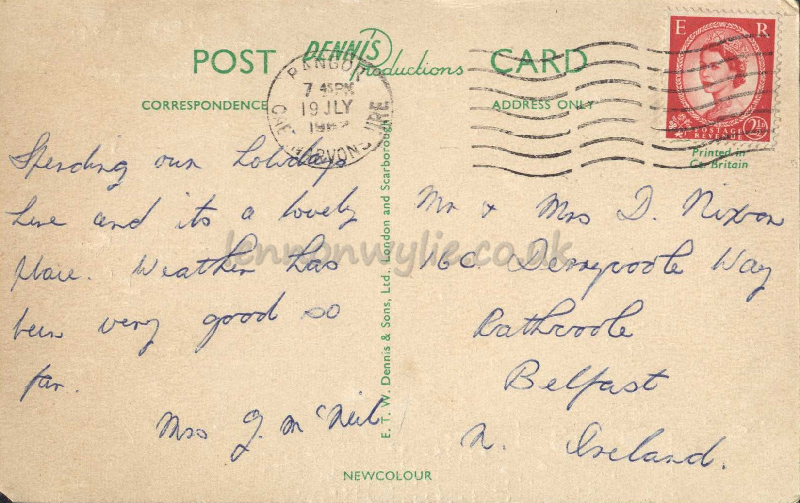 POST DENNIS Productions CARD
CORRESPONDENCE ADDRESS ONLY
E R
POSTAGE REVENUE 2½D
Printed in Gt. Britain
BANGOR
7 45PM
19 JLY
CAERNARVONSHIRE
Spending our holidays
here and its a lovely
place. Weather has
been very good so
far.
Mrs J. McNeil
Mr & Mrs D. Nixon
16C Derrycoole Way
Rathcoole
Belfast
N. Ireland.
E. T. W. Dennis & Sons, Ltd., London and Scarborough
NEWCOLOUR
lennonwylie.co.uk